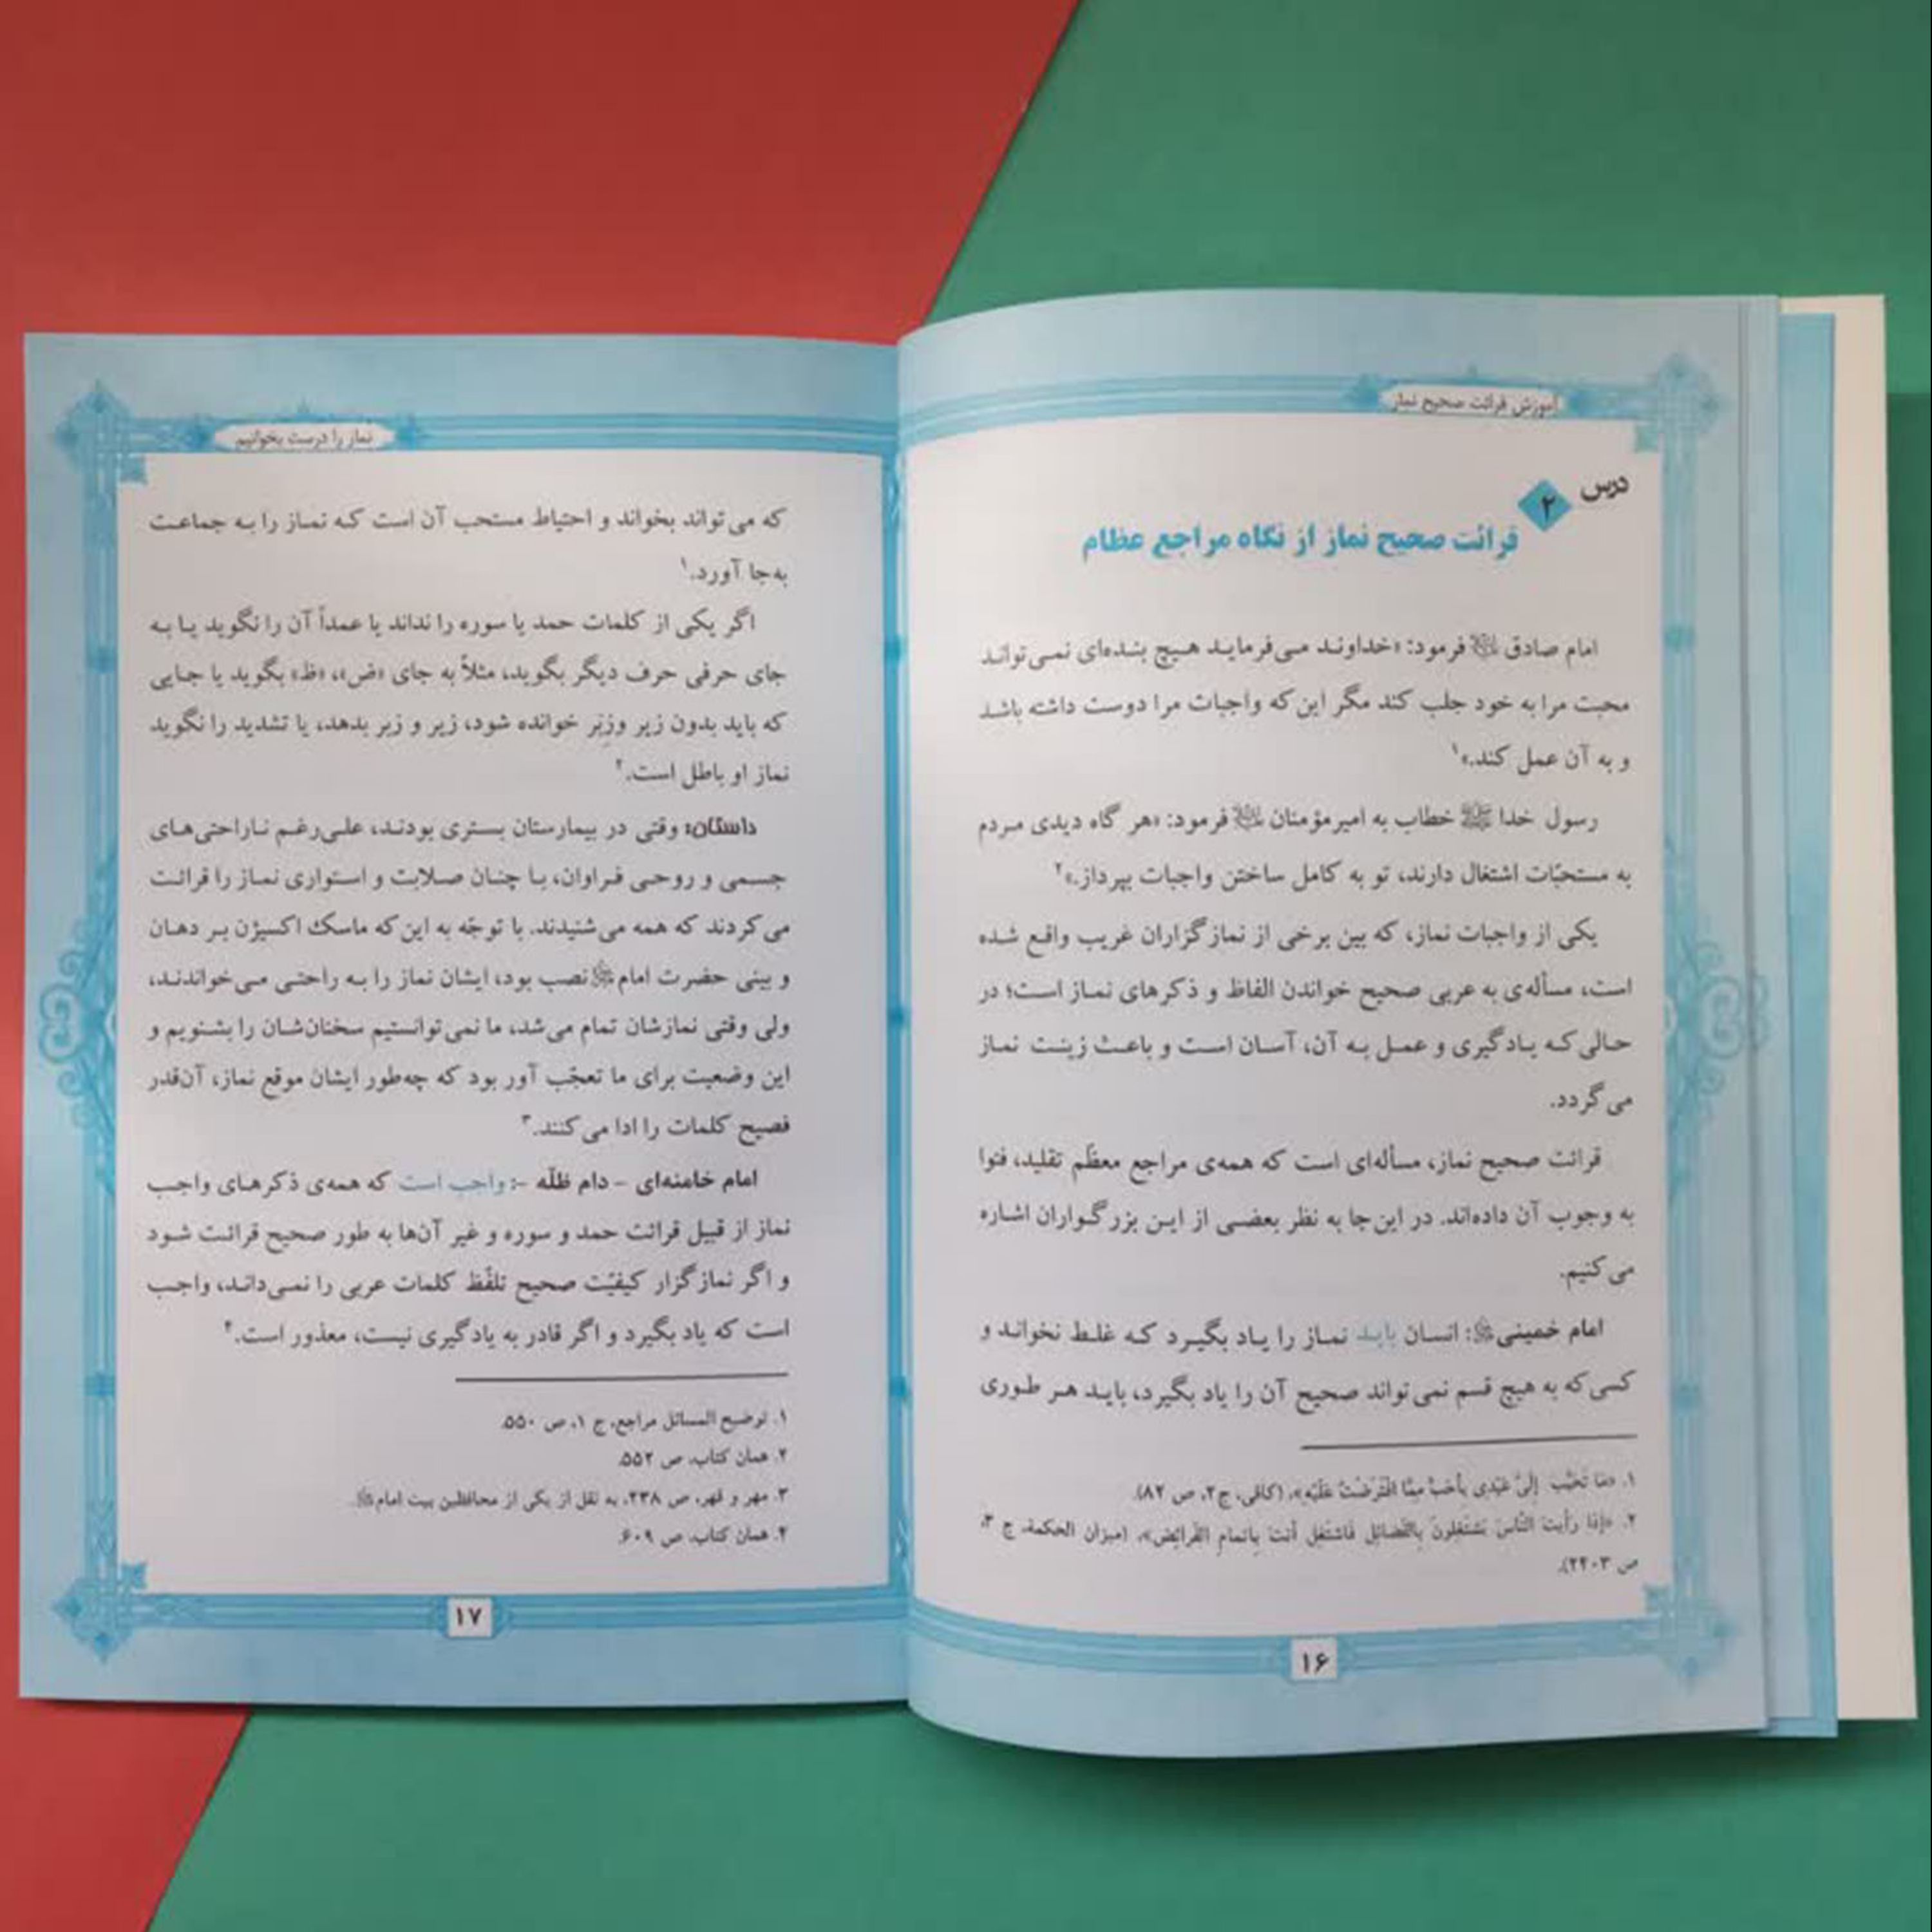 آموزش قرائت صحیح نماز
درس ۲
قرائت صحیح نماز از نگاه مراجع عظام
امام صادق علیه السلام فرمود: «خداوند می‌فرماید هیچ بنده‌ای نمی‌تواند
محبت مرا به خود جلب کند مگر این‌که واجبات مرا دوست داشته باشد
و به آن عمل کند.»۱
رسول خدا ﷺ خطاب به امیرمؤمنان علیه السلام فرمود: «هر گاه دیدی مردم
به مستحبّات اشتغال دارند، تو به کامل ساختن واجبات بپرداز.»۲
یکی از واجبات نماز، که بین برخی از نمازگزاران غریب واقع شده
است، مسأله‌ی به عربی صحیح خواندن الفاظ و ذکرهای نماز است؛ در
حالی‌که یادگیری و عمل به آن، آسان است و باعث زینت نماز
می‌گردد.
قرائت صحیح نماز، مسأله‌ای است که همه‌ی مراجع معظّم تقلید، فتوا
به وجوب آن داده‌اند. در این‌جا به نظر بعضی از این بزرگواران اشاره
می‌کنیم.
امام خمینی: انسان باید نماز را یاد بگیرد که غلط نخواند و
کسی‌که به هیچ قسم نمی‌تواند صحیح آن را یاد بگیرد، باید هر طوری
۱. «ما تَحَبَّبَ إلَیَّ عَبْدی بِأحَبَّ مِمَّا افْتَرَضْتُ عَلَیْهِ»، (کافی، ج۲، ص ۸۲).
۲. «إذا رَأیتَ النّاسَ یَشتَغِلونَ بِالفَضائِلِ فَاشتَغِل أنتَ بِاِتمامِ الفَرائِضِ»، (میزان الحکمة، ج ۳،
ص ۲۴۰۳).
۱۶
نماز را درست بخوانیم
که می‌تواند بخواند و احتیاط مستحب آن است که نماز را به جماعت
به‌جا آورد.۱
اگر یکی از کلمات حمد یا سوره را نداند یا عمداً آن را نگوید یا به
جای حرفی حرف دیگر بگوید، مثلاً به جای «ض»، «ظ» بگوید یا جایی
که باید بدون زیر وزبَر خوانده شود، زیر و زبر بدهد، یا تشدید را نگوید
نماز او باطل است.۲
داستان: وقتی در بیمارستان بستری بودند، علی‌رغم ناراحتی‌های
جسمی و روحی فراوان، با چنان صلابت و استواری نماز را قرائت
می‌کردند که همه می‌شنیدند. با توجّه به این‌که ماسک اکسیژن بر دهان
و بینی حضرت امام نصب بود، ایشان نماز را به راحتی می‌خواندند،
ولی وقتی نمازشان تمام می‌شد، ما نمی‌توانستیم سخنان‌شان را بشنویم و
این وضعیت برای ما تعجّب آور بود که چه‌طور ایشان موقع نماز، آن‌قدر
فصیح کلمات را ادا می‌کنند.۳
امام خامنه‌ای - دام ظلّه -: واجب است که همه‌ی ذکرهای واجب
نماز از قبیل قرائت حمد و سوره و غیر آن‌ها به طور صحیح قرائت شود
و اگر نمازگزار کیفیّت صحیح تلفّظ کلمات عربی را نمی‌داند، واجب
است که یاد بگیرد و اگر قادر به یادگیری نیست، معذور است.۴
۱. توضیح المسائل مراجع، ج ۱، ص ۵۵۰.
۲. همان کتاب، ص ۵۵۲.
۳. مهر و قهر، ص ۲۳۸، به نقل از یکی از محافظین بیت امام.
۴. همان کتاب، ص ۶۰۹.
۱۷